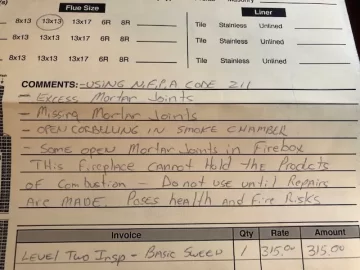 Flue Size
Liner
8x13 13x13 13x17 6R 8R
Tile Stainless Unlined
8x13 13x13 13x17 6R 8R
Tile Stainless Unlined
8x13 13x13 13x17 6R 8R
Tile Stainless Unlined
COMMENTS: - USING N.F.P.A CODE 211
- Excess Mortar Joints
- Missing Mortar Joints
- OPEN CORBELLING IN SMOKE CHAMBER
- Some open Mortar Joints in Firebox
THis Fireplace Cannot Hold the Products
of Combustion - Do not use until Repairs
Are MADE. Poses health and Fire Risks
Invoice Qty Rate Amount
LEVEL Two Insp - Basic Sweep 1 315.00 315.00